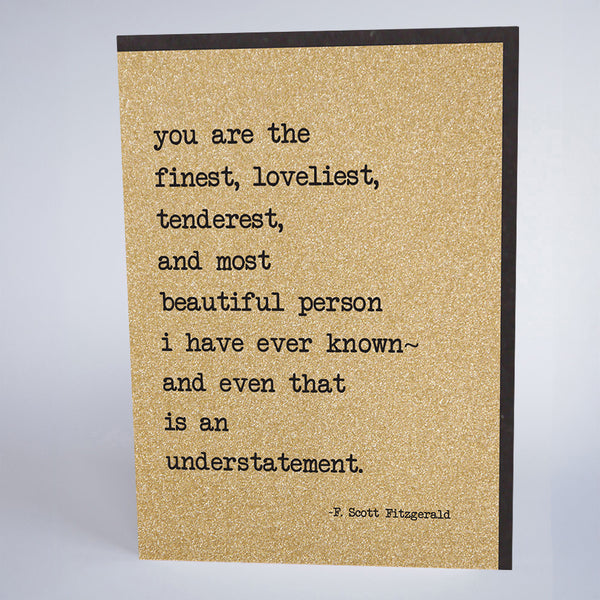 you are the
finest, loveliest,
tenderest,
and most
beautiful person
i have ever known~
and even that
is an
understatement.
-F. Scott Fitzgerald